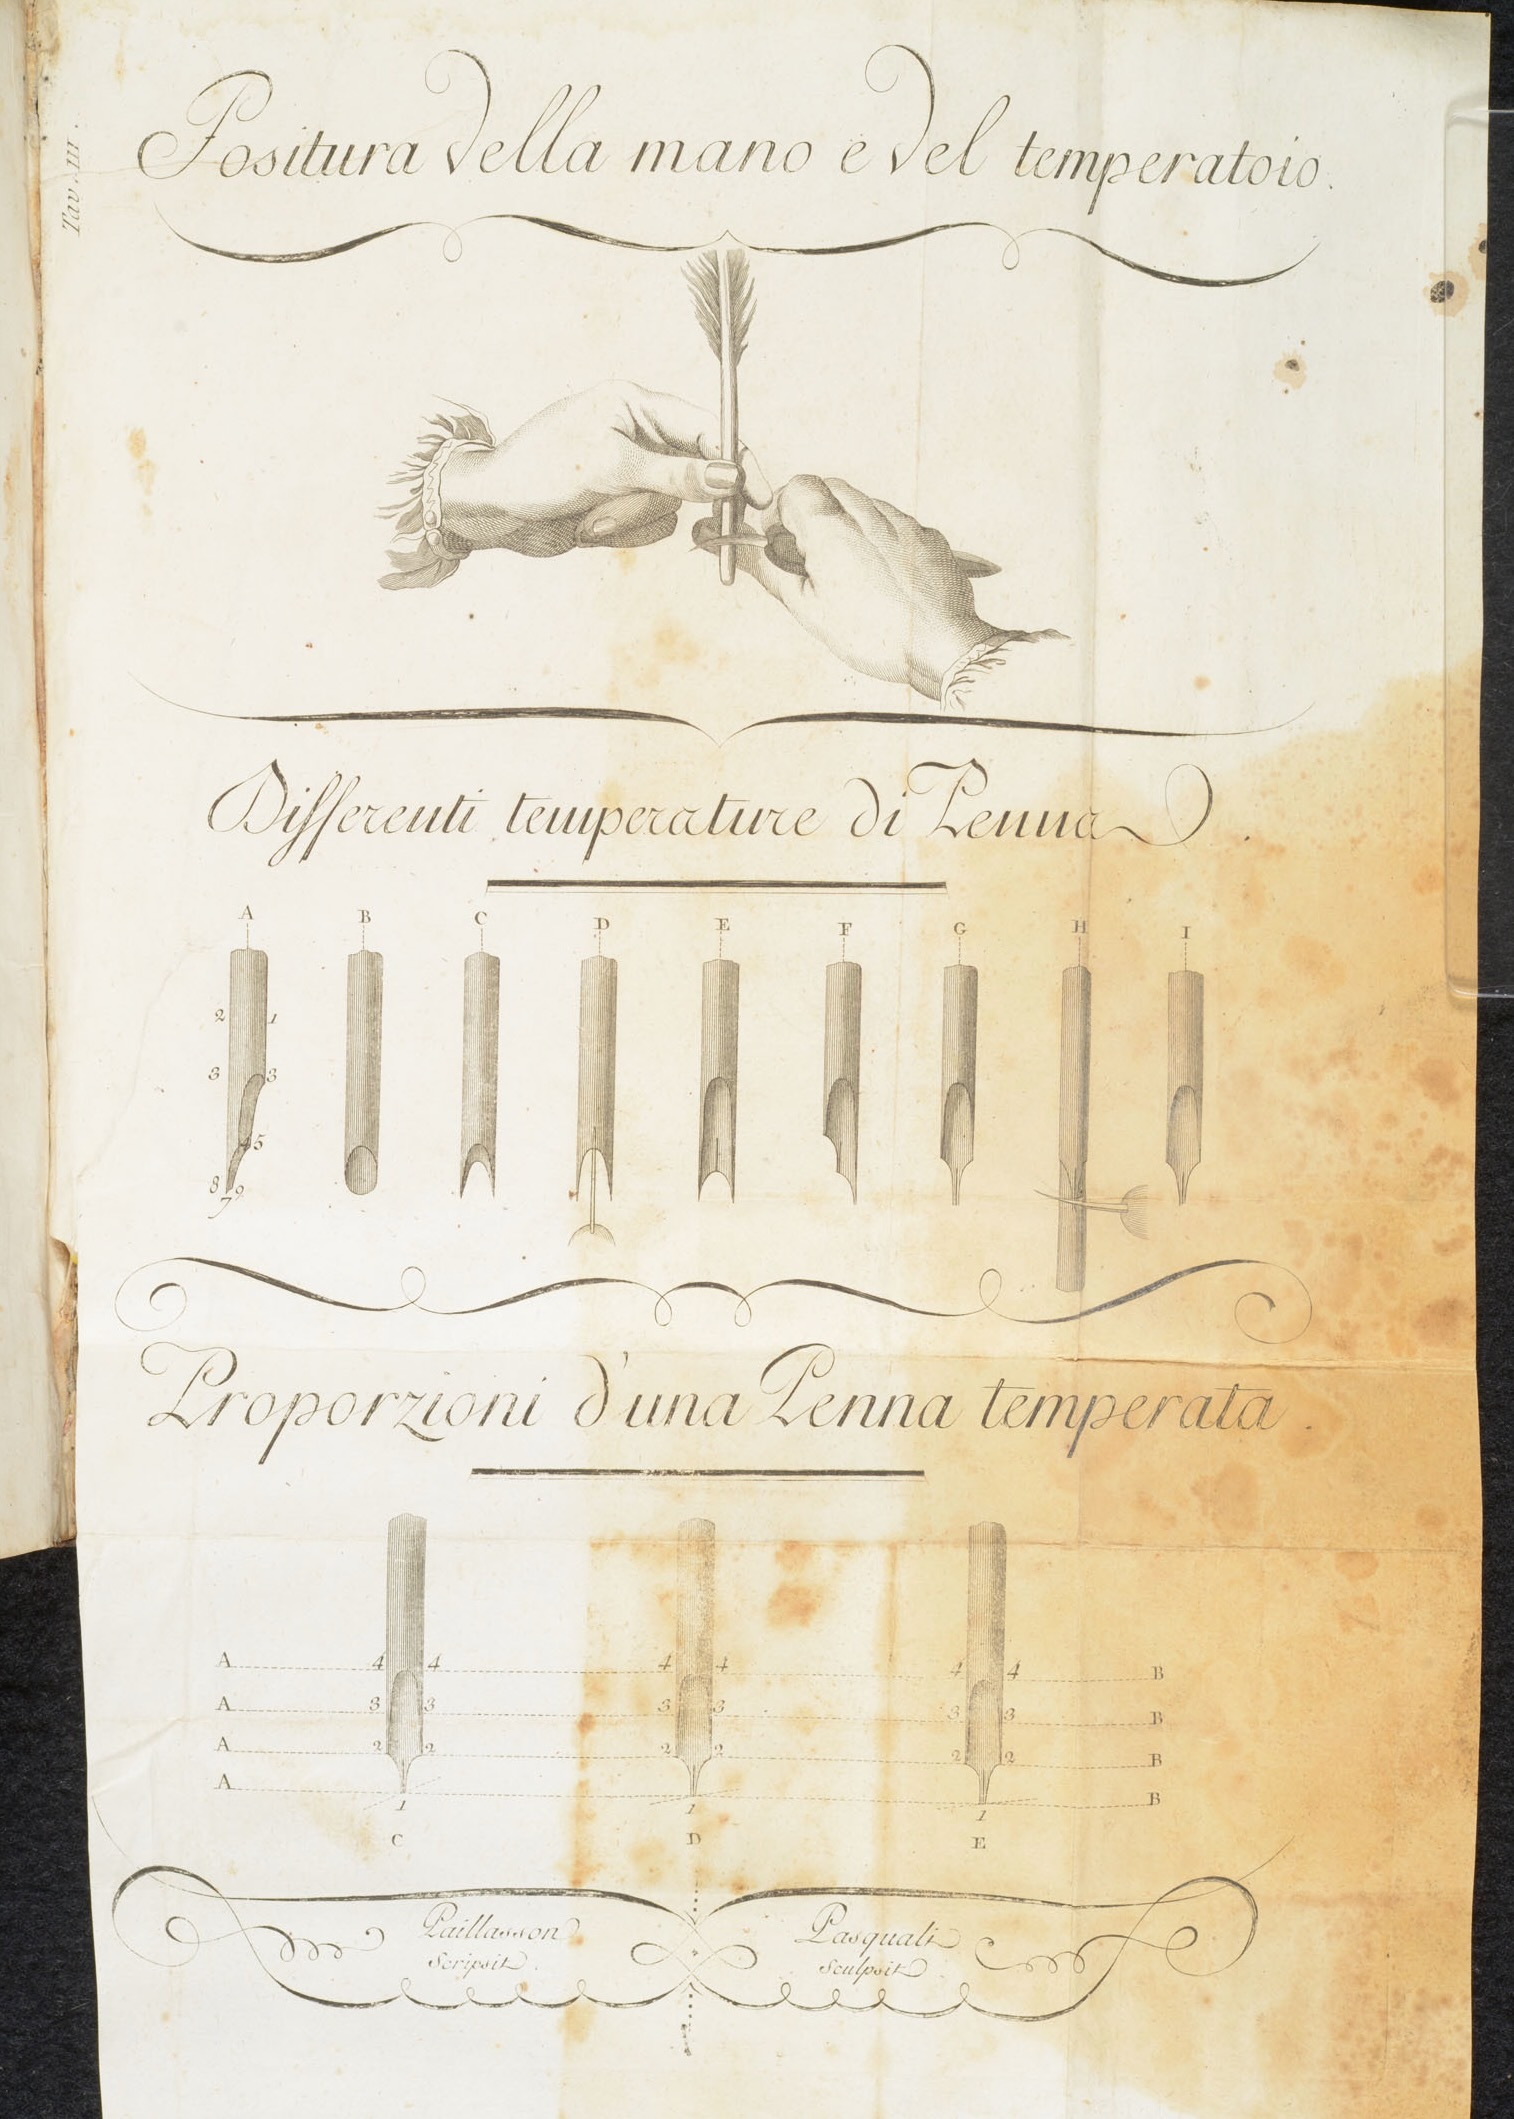 Tav. III.
Positura della mano e del temperatoio.
Differenti temperature di Penna.
A B C D E F G H I
2 1
3 3
4 5
8 7 9
Proporzioni d'una Penna temperata.
A 4 4 4 4 4 4 B
A 3 3 3 3 3 3 B
A 2 2 2 2 2 2 B
A 1 1 1 B
C D E
Paillasson
Scripsit.
Pasquali
Sculpsit.